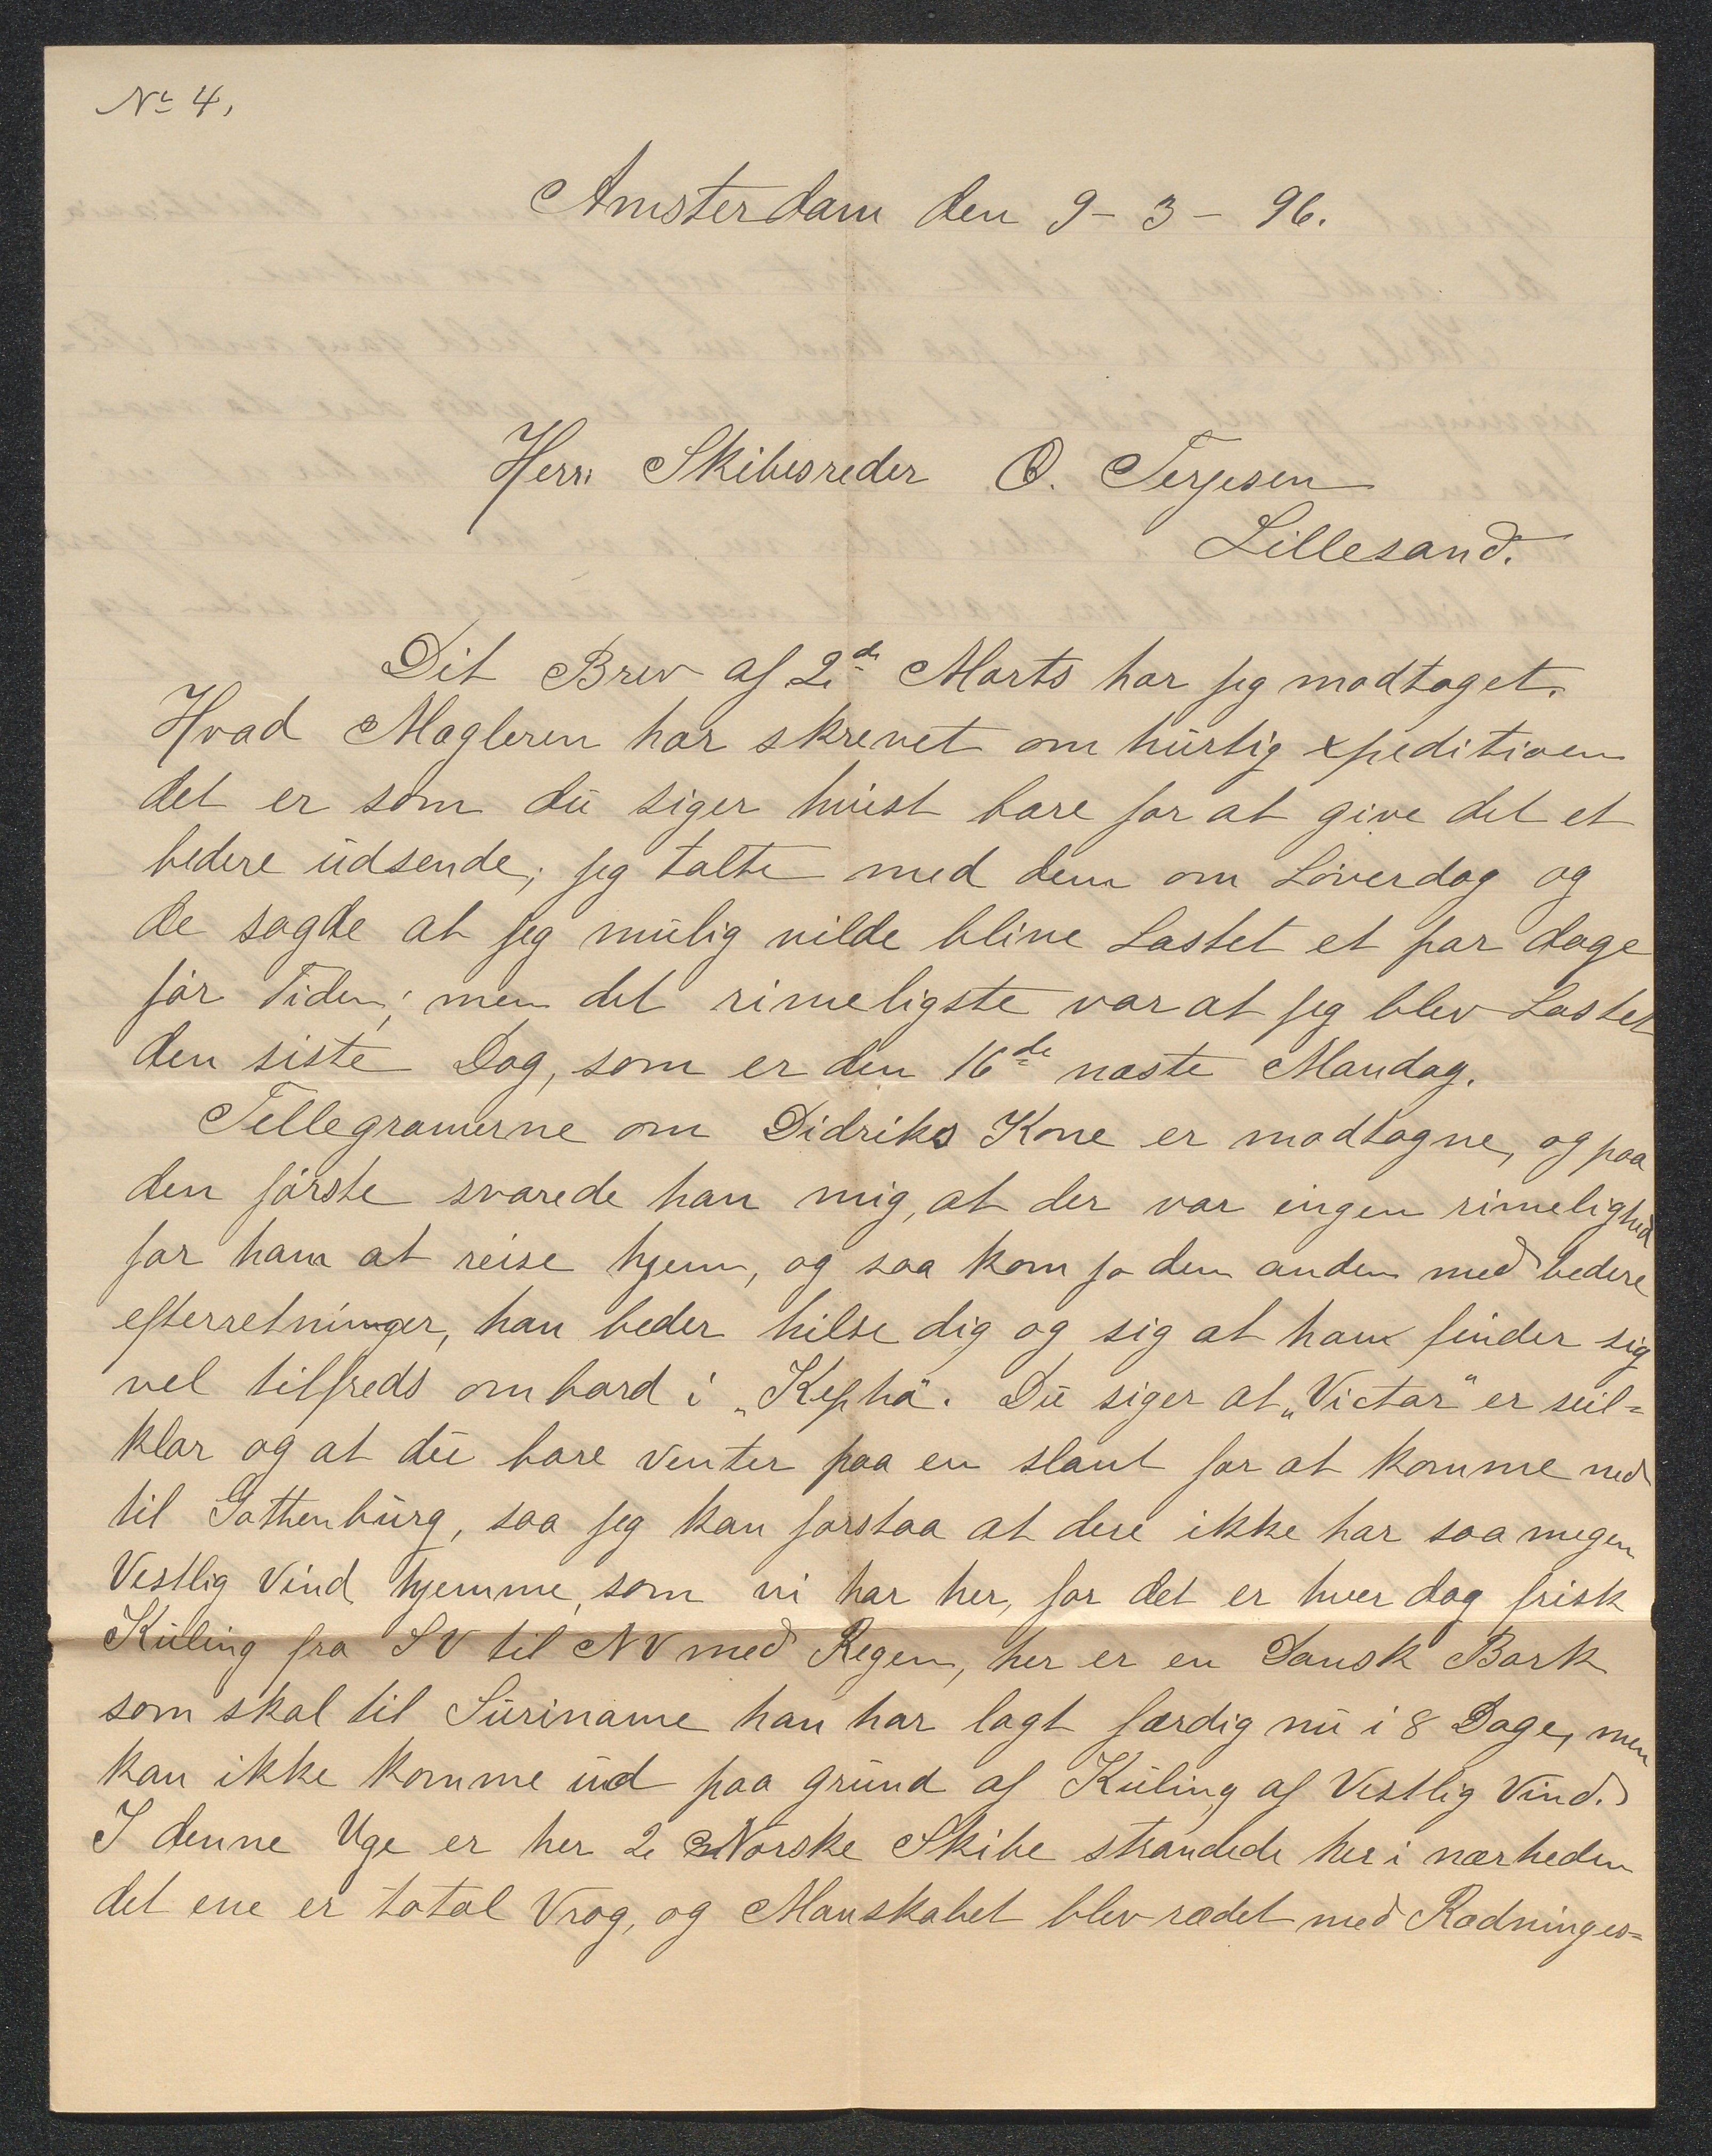 No 4,
Amsterdam den 9-3-96.
Herr Skibesreder O. Terjesen
Lillesand.
Dit Brev af 2de Marts har jeg modtaget.
Hvad Mægleren har skrevet om hurtig expeditioen
det er som du siger hvist bare for at give det et
bedere udsende; jeg talte med dem om Löverdag og
de sagde at jeg mulig vilde blive Lastet et par dage
för Tiden; men det rimeligste var at jeg blev Lastet
den siste Dag, som er den 16de næste Mandag.
Tellegramerne om Didriks Kone er modtagne, og paa
den förste svarede han mig, at der var ingen rimelighed
for ham at reise hjem, og saa kom jo den anden med bedere
efterretninger, han beder hilse dig og sig at han finder sig
vel tilfreds ombord i „Kepha". Du siger at „Victor" er seil=
klar og at du bare venter paa en slant for at komme ned
til Gothenburg, saa jeg kan forstaa at dere ikke har saa megen
Vestlig Vind hjemme, som vi har her, for det er hver dag frisk
Kuling fra SV til NV med Regen, her er en Dansk Bark
som skal til Suriname han har lagt færdig nu i 8 Dage, men
kan ikke komme ud paa grund af Kuling af Vestlig Vind.
I denne Uge er her 2 Norske Skibe strandede her i nærheden
det ene er total Vrag, og Manskabet blev rædet med Rædninges=